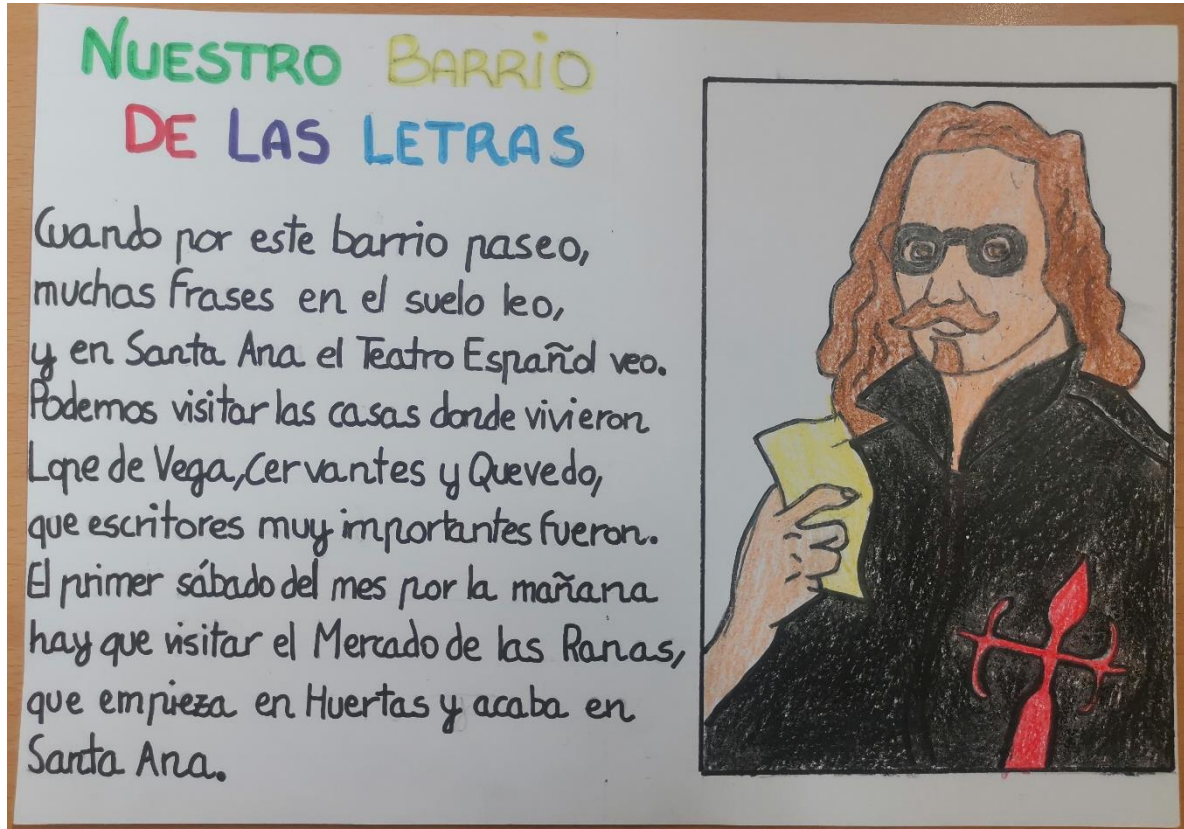 NUESTRO BARRIO
DE LAS LETRAS
Cuando por este barrio paseo,
muchas frases en el suelo leo,
y en Santa Ana el Teatro Español veo.
Podemos visitar las casas donde vivieron
Lope de Vega, Cervantes y Quevedo,
que escritores muy importantes fueron.
El primer sábado del mes por la mañana
hay que visitar el Mercado de las Ranas,
que empieza en Huertas y acaba en
Santa Ana.